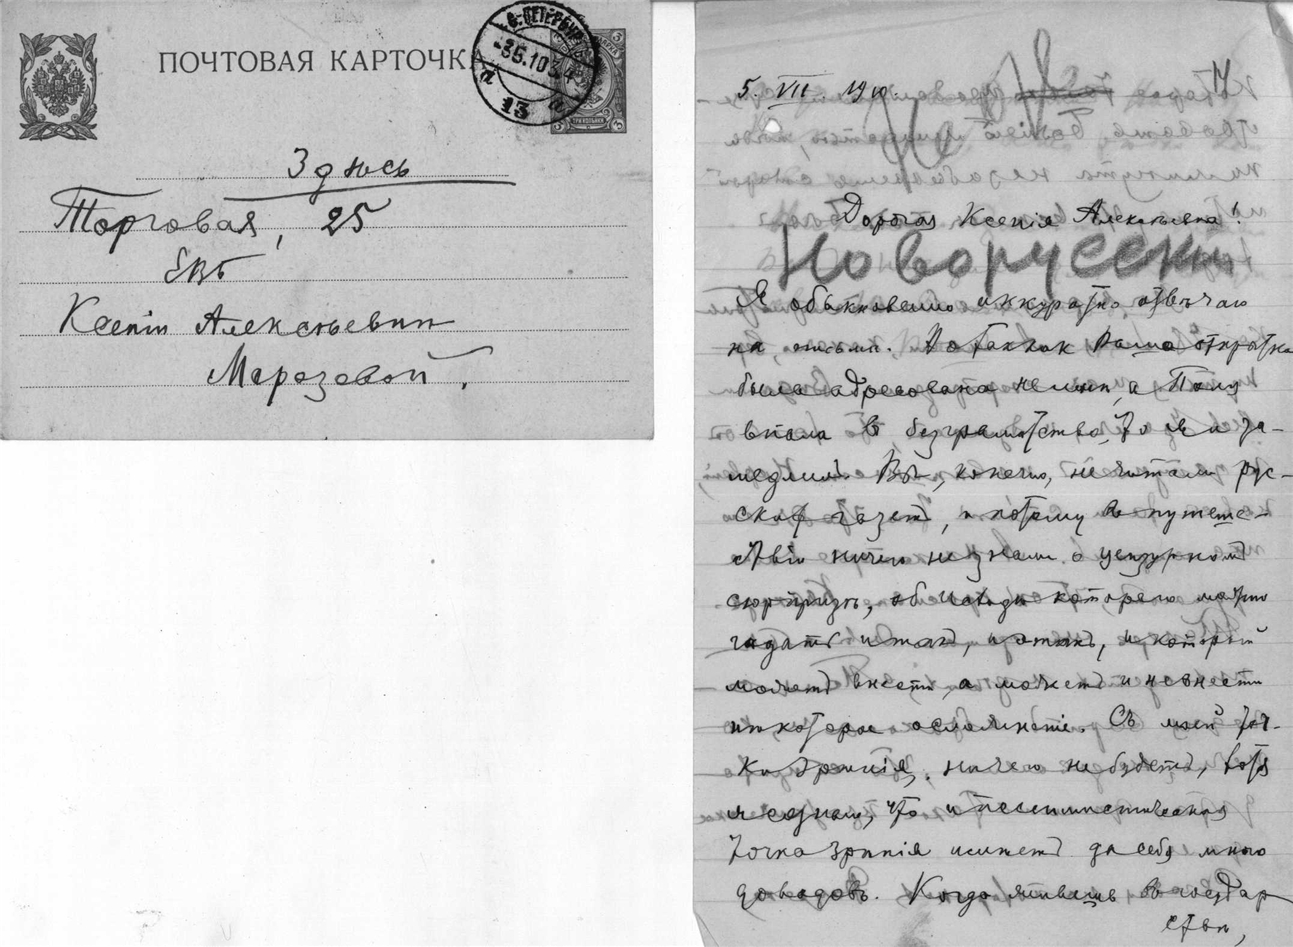 ПОЧТОВАЯ КАРТОЧКА
С. ПЕТЕРБУРГ
13
ТРИ КОПѢЙКИ
Здѣсь
Торговая, 25
ЕВБ
Ксеніи Алексѣевнѣ
Морозовой.
5. VII. 1910.
Дорогая Ксенія Алексѣевна!
Новорусский
Я обыкновенно аккуратно отвѣчаю
на письма. Но такъ какъ Ваша открытка
была адресована не мнѣ, а
впала въ безграмотство, то я и за-
медлилъ. Вы, конечно, не читали рус-
ских газетъ, и потому въ путеше-
ствіи ничего не знали о цензурномъ
сюрпризѣ, объ исходѣ котораго можно
гадать и такъ, и этакъ, и который
можетъ внести, а можетъ и не внести
нѣкоторое осложненіе. Съ моей точ-
ки зрѣнія, ничего не будетъ, хотя
я сознаю, что и пессимистическая
точка зрѣнія имѣетъ за себя много
доводовъ. Когда живешь въ государ
ствѣ,